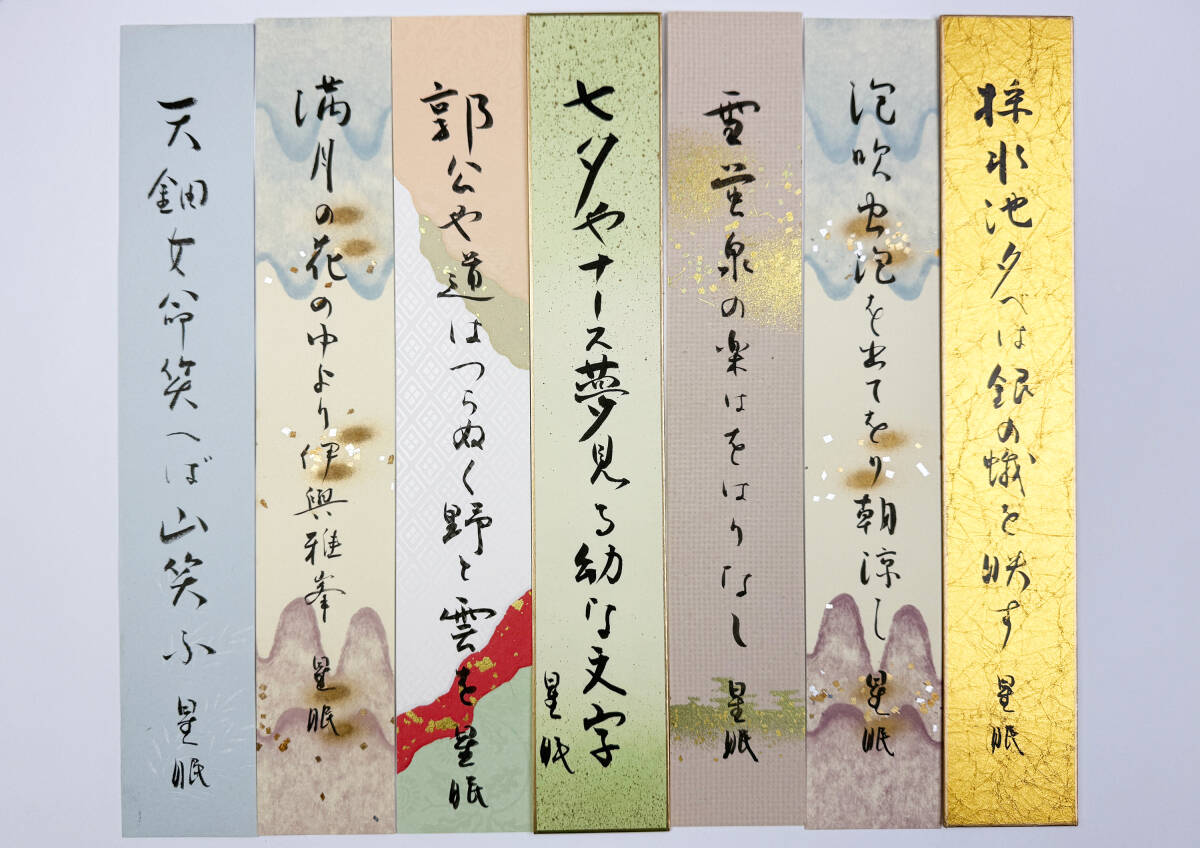 梓水池夕べは銀の蛾を映す 星眠
泡吹虫泡を出てをり朝涼し 星眠
雪蛍泉の楽はをはりなし 星眠
七夕やナース夢見る幼な文字
星眠
郭公や道はつらぬく野と雲を 星眠
満月の花の中より伊與雅峯 星眠
天鈿女命笑へば山笑ふ 星眠